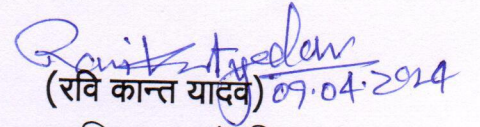 Ravi Kant Yadav
(रवि कान्त यादव) 09.04.2024